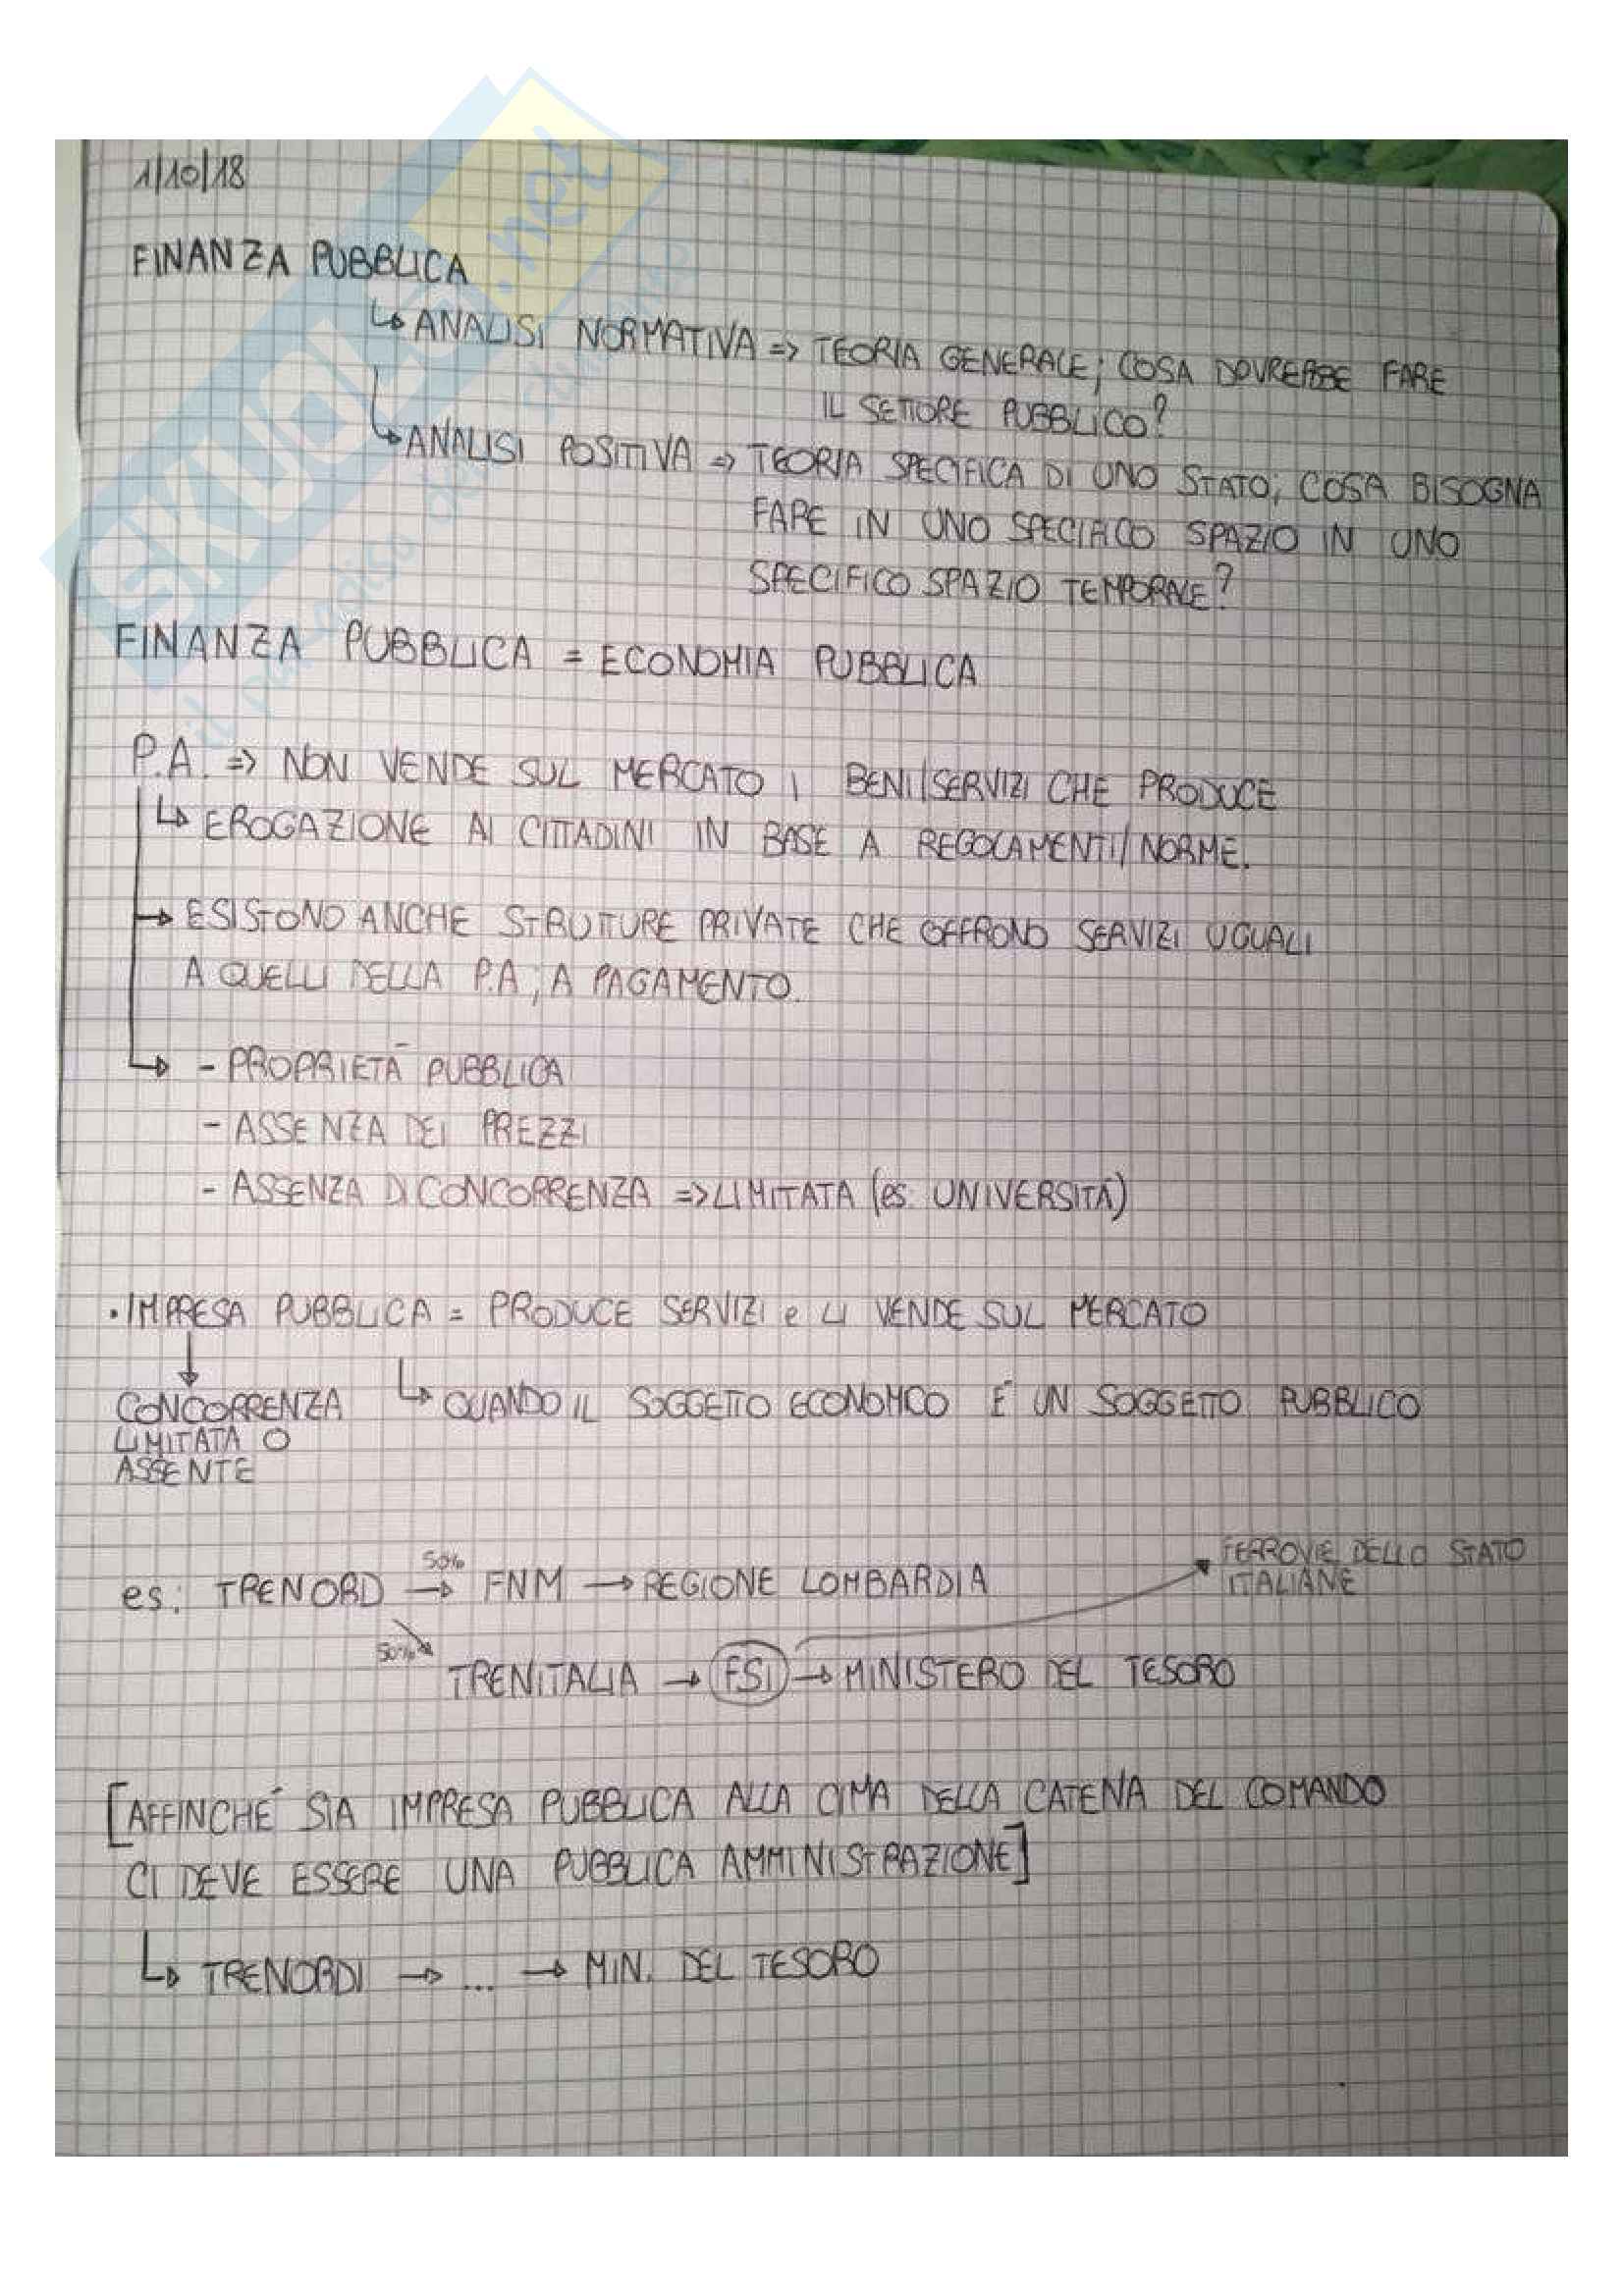 1/10/18
FINANZA PUBBLICA
↳ ANALISI NORMATIVA => TEORIA GENERALE; COSA DOVREBBE FARE
IL SETTORE PUBBLICO?
↳ ANALISI POSITIVA => TEORIA SPECIFICA DI UNO STATO; COSA BISOGNA
FARE IN UNO SPECIFICO SPAZIO IN UNO
SPECIFICO SPAZIO TEMPORALE?
FINANZA PUBBLICA = ECONOMIA PUBBLICA
P.A. => NON VENDE SUL MERCATO I BENI/SERVIZI CHE PRODUCE
↳ EROGAZIONE AI CITTADINI IN BASE A REGOLAMENTI/NORME.
→ ESISTONO ANCHE STRUTTURE PRIVATE CHE OFFRONO SERVIZI UGUALI
A QUELLI DELLA P.A; A PAGAMENTO.
↳ - PROPRIETÀ PUBBLICA
- ASSENZA DEI PREZZI
- ASSENZA DI CONCORRENZA => LIMITATA (es. UNIVERSITÀ)
• IMPRESA PUBBLICA = PRODUCE SERVIZI e LI VENDE SUL MERCATO
↓
CONCORRENZA ↳ QUANDO IL SOGGETTO ECONOMICO È UN SOGGETTO PUBBLICO
LIMITATA O
ASSENTE
FERROVIE DELLO STATO
ITALIANE
50%
es: TRENORD → FNM → REGIONE LOMBARDIA
50%
TRENITALIA → FSI → MINISTERO DEL TESORO
[AFFINCHÉ SIA IMPRESA PUBBLICA ALLA CIMA DELLA CATENA DEL COMANDO
CI DEVE ESSERE UNA PUBBLICA AMMINISTRAZIONE]
↳ TRENORDI → ... → MIN. DEL TESORO
SKUOLA.net
il paradiso dello studente